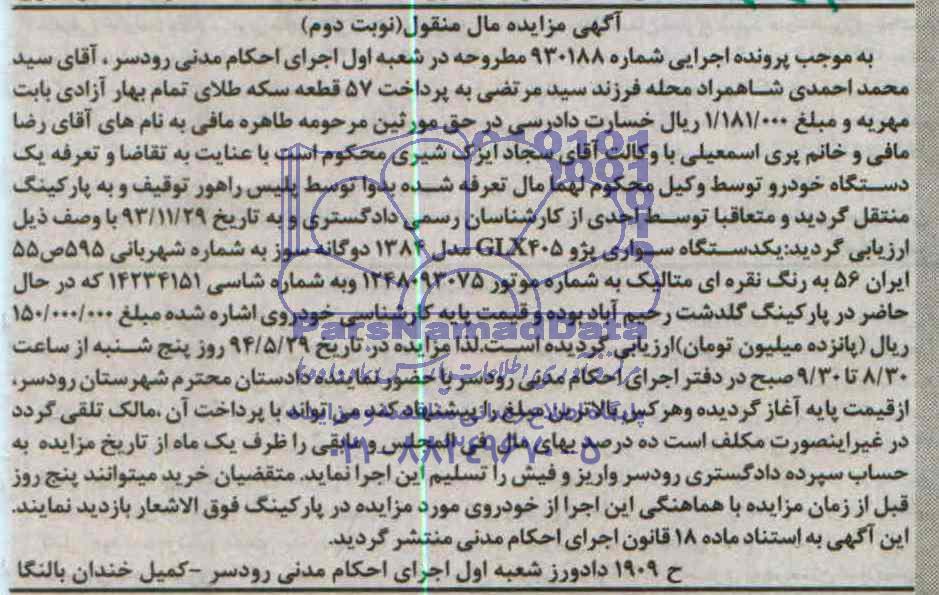 آگهی مزایده مال منقول(نوبت دوم)
به موجب پرونده اجرایی شماره ۹۳۰۱۸۸ مطروحه در شعبه اول اجرای احکام مدنی رودسر ، آقای سید
محمد احمدی شاهمراد محله فرزند سید مرتضی به پرداخت ۵۷ قطعه سکه طلای تمام بهار آزادی بابت
مهریه و مبلغ ۱/۱۸۱/۰۰۰ ریال خسارت دادرسی در حق مورثین مرحومه طاهره مافی به نام های آقای رضا
مافی و خانم پری اسمعیلی با وکالت آقای سجاد ایزک شیری محکوم است با عنایت به تقاضا و تعرفه یک
دستگاه خودرو توسط وکیل محکوم لهما مال تعرفه شده بدوا توسط پلیس راهور توقیف و به پارکینگ
منتقل گردید و متعاقبا توسط احدی از کارشناسان رسمی دادگستری و به تاریخ ۹۳/۱۱/۲۹ با وصف ذیل
ارزیابی گردید:یکدستگاه سواری پژو GLX۴۰۵ مدل ۱۳۸۴ دوگانه سوز به شماره شهربانی ۵۹۵ص۵۵
ایران ۵۶ به رنگ نقره ای متالیک به شماره موتور ۱۲۴۸۰۹۳۰۷۵ وبه شماره شاسی ۱۴۲۳۴۱۵۱ که در حال
حاضر در پارکینگ گلدشت رحیم آباد بوده و قیمت پایه کارشناسی خودروی اشاره شده مبلغ ۱۵۰/۰۰۰/۰۰۰
ریال (پانزده میلیون تومان)ارزیابی گردیده است.لذا مزایده در تاریخ ۹۴/۵/۲۹ روز پنج شنبه از ساعت
۸/۳۰ تا ۹/۳۰ صبح در دفتر اجرای احکام مدنی رودسر با حضور نماینده دادستان محترم شهرستان رودسر،
ازقیمت پایه آغاز گردیده وهرکس بالاترین مبلغ را پیشنهاد کند می تواند با پرداخت آن ،مالک تلقی گردد
در غیراینصورت مکلف است ده درصد بهای مال فی المجلس و مابقی را ظرف یک ماه از تاریخ مزایده به
حساب سپرده دادگستری رودسر واریز و فیش را تسلیم این اجرا نماید. متقضیان خرید میتوانند پنج روز
قبل از زمان مزایده با هماهنگی این اجرا از خودروی مورد مزایده در پارکینگ فوق الاشعار بازدید نمایند.
این آگهی به استناد ماده ۱۸ قانون اجرای احکام مدنی منتشر گردید.
ح ۱۹۰۹ دادورز شعبه اول اجرای احکام مدنی رودسر -کمیل خندان بالنگا
ParsNamadData
۰۲۱-۸۸۳۴۹۶۷۰-۵